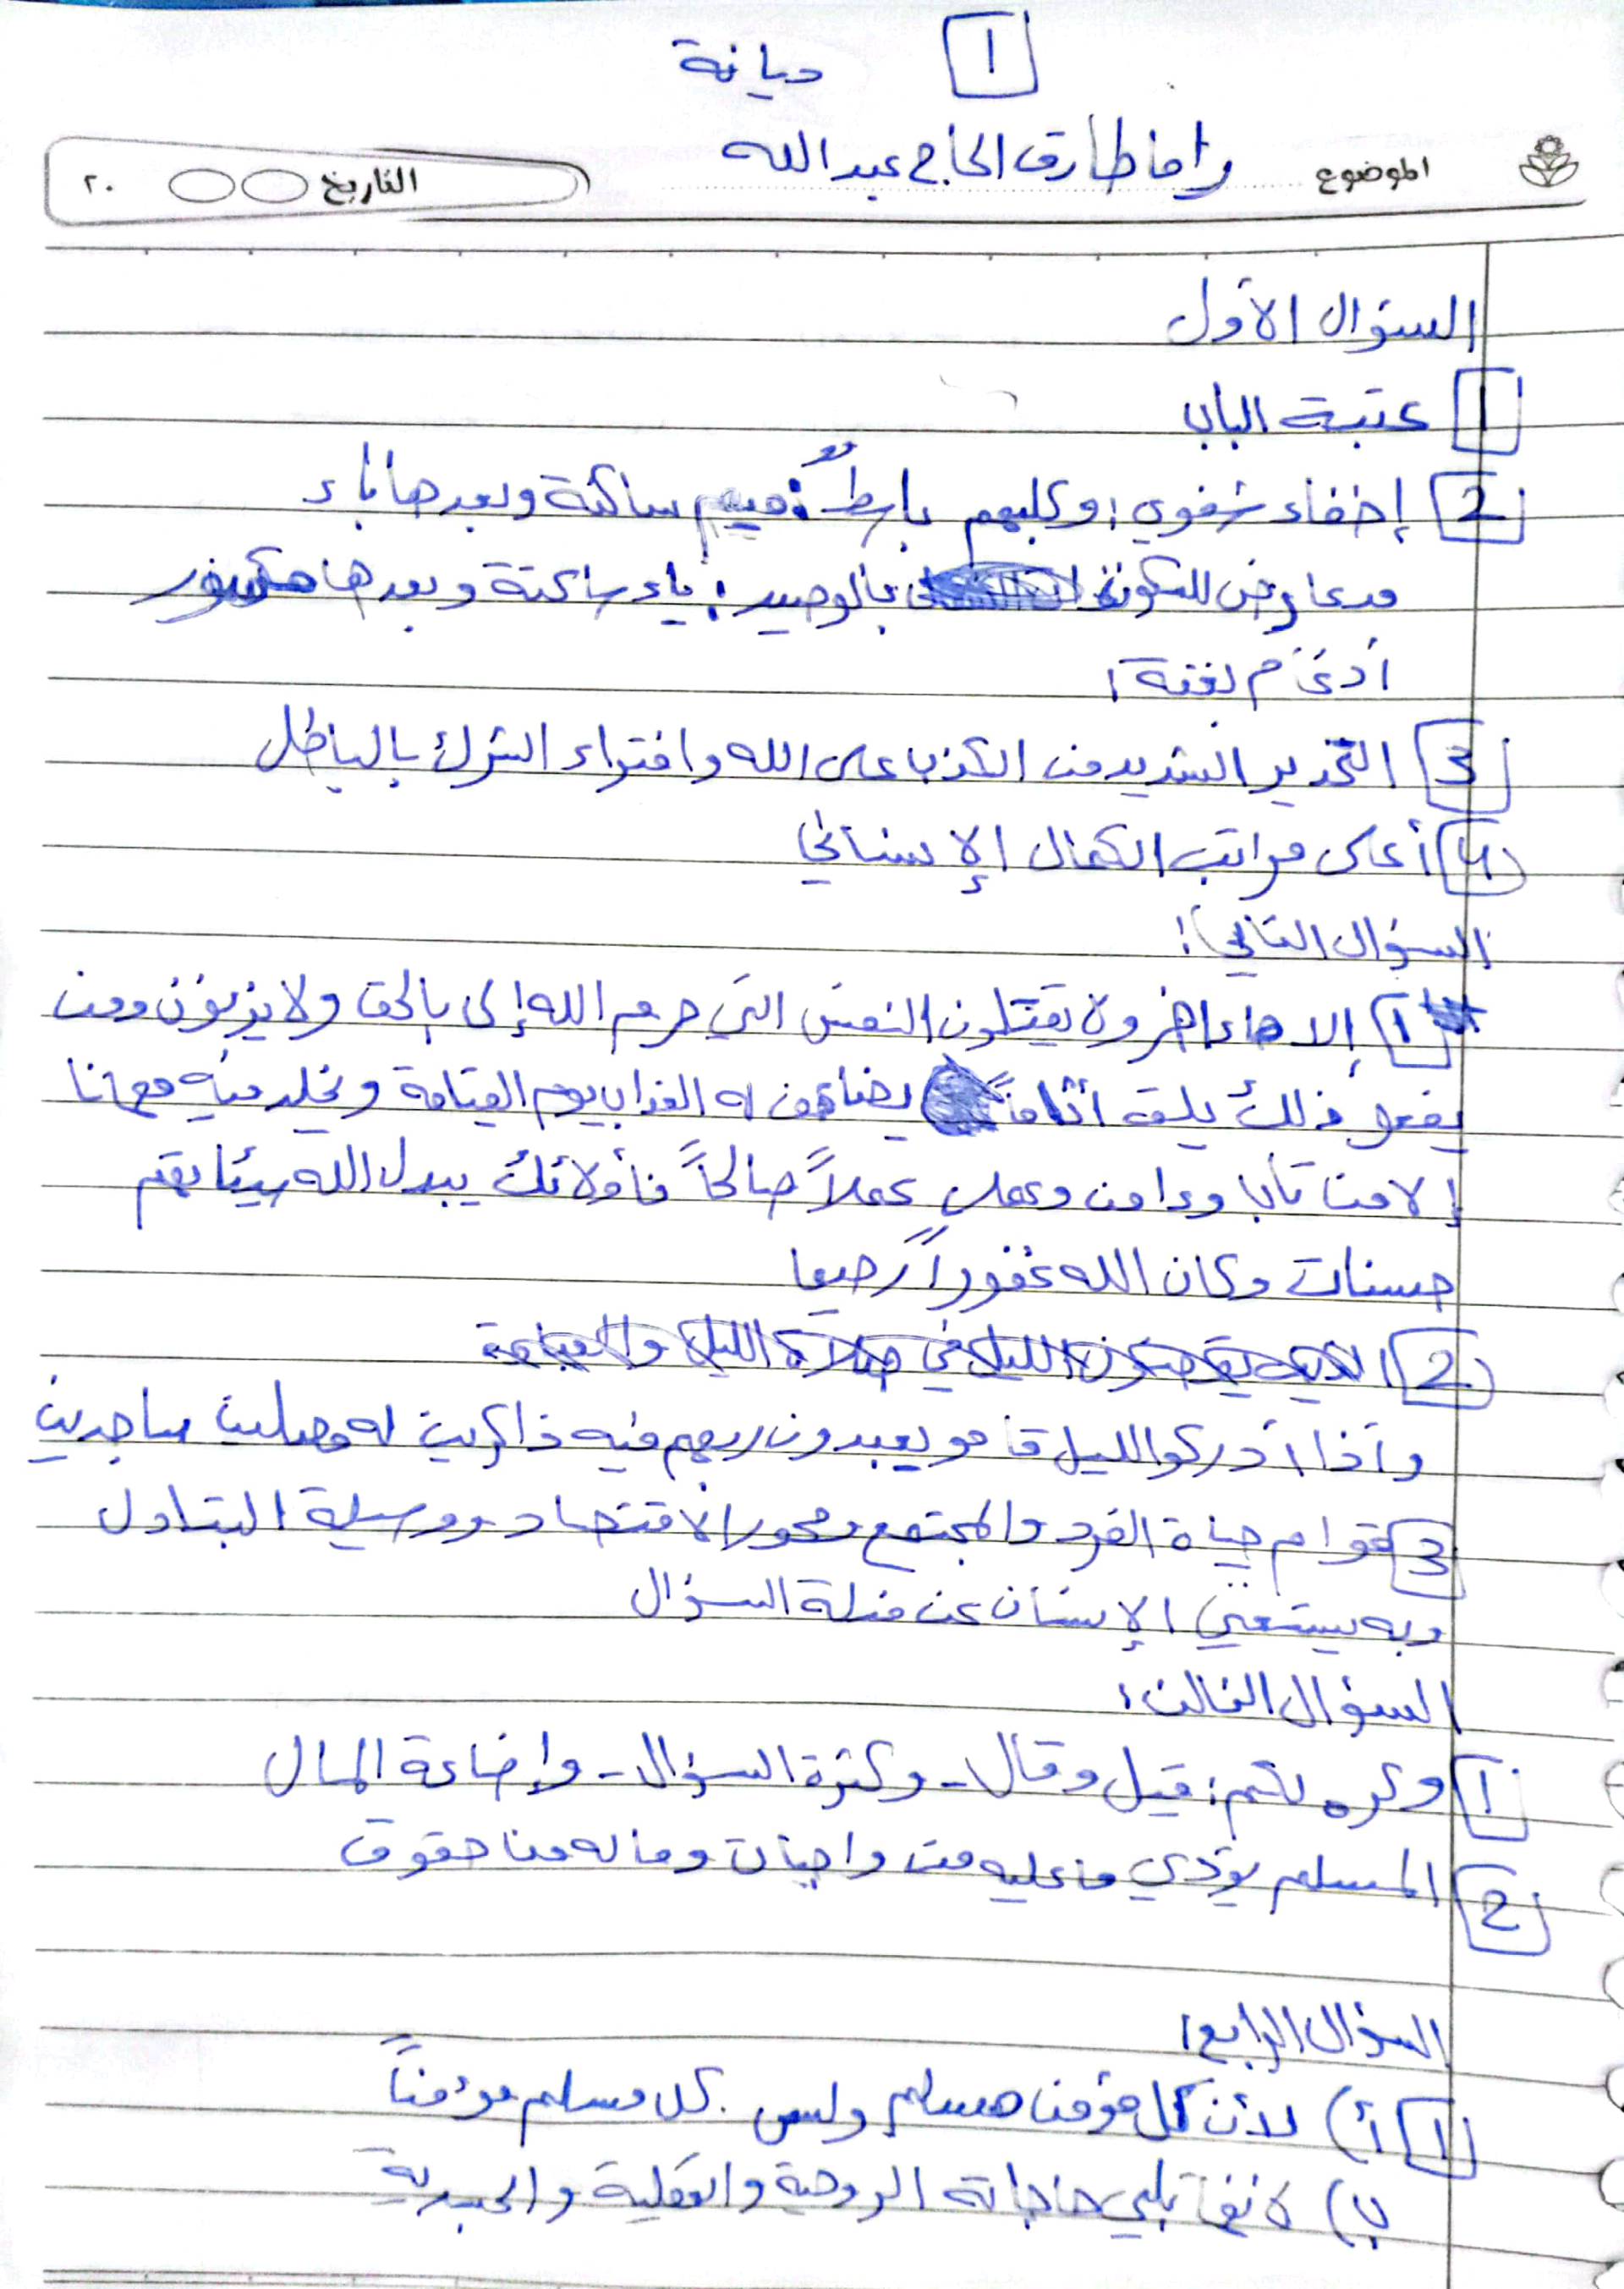 1 ديانة
الموضوع راما طارق الحاج عبدالله التاريخ ٢٠
السؤال الأول
1 عتبة الباب
2 إخفاء شفوي: وكلبهم باسطٌ: ميم ساكنة وبعدها باء
مد عارض للسكون بالوصيد: ياء ساكنة وبعدها
أدغام بغنة:
3 التحذير الشديد من الكذب على الله وافتراء الشرك بالباطل
4 أعلى مراتب الكمال الإنساني
السؤال الثاني:
1 إلاهاءاخر ولا يقتلون النفس التي حرم الله إلى بالحق ولا يزنون ومن
يفعل ذلك يلقه أثاماً يضاعف له العذاب يوم القيامة ويخلد فيه مهانا
إلا من تاب وءامن وعمل عملاً صالحاً فأولائك يبدل الله سيئاتهم
حسنات وكان الله غفوراً رحيما
2
وأذا أدركوا الليل قامو يعبدون ربهم فيه ذاكرين له مصلين ساجدين
3 قوام حياة الفرد والمجتمع ومحور الاقتصاد ووسيلة التبادل
وبه يستغني الإنسان عن مذلة السؤال
السؤال الثالث:
1 وكره لكم: قيل وقال - وكثرة السؤال - وإضاعة المال
2 المسلم يؤدي ما عليه من واجبات وما له من حقوق
السؤال الرابع:
1 أ) لأن كل مؤمن مسلم وليس كل مسلم مؤمناً
ب) لانها تلبي حاجاته الروحية والعقلية والجسدية